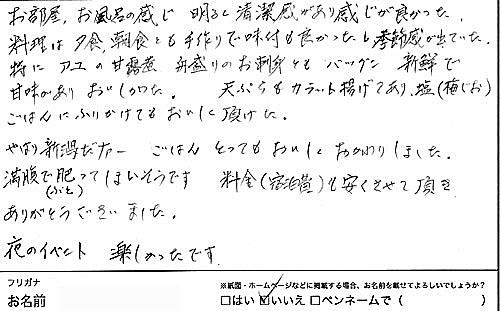 お部屋、お風呂の感じ 明るく清潔感があり感じが良かった。
料理は夕食、朝食とも手作りで味付も良かったし季節感が出ていた。
特にアユの甘露煮 舟盛りのお刺身もバツグン 新鮮で
甘味があり おいしかった。 天ぷらもカラット揚げてあり、塩(梅じお)
ごはんにふりかけてもおいしく頂けた。
やはり新潟だネー ごはん とってもおいしく おかわりしました。
満腹で肥ってしまいそうです 料金(宿泊費)も安くさせて頂き
(ふと)
ありがとうございました。
夜のイベント 楽しかったです
フリガナ
お名前
※紙面・ホームページなどに掲載する場合、お名前を載せてよろしいでしょうか?
□はい ☑いいえ □ペンネームで( )